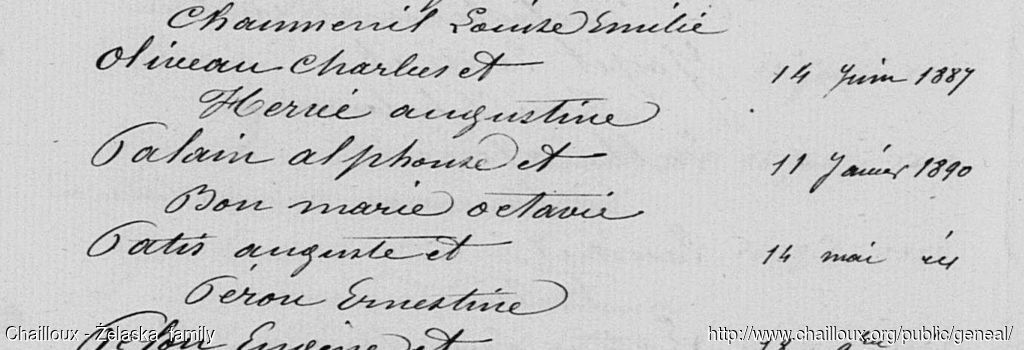 Chaumenil Louise Emilie
Oliveau Charles et 14 Juin 1887
Hervé augustine
Palain alphonse et 11 Janvier 1890
Bon marie octavie
Patis auguste et 14 mai id
Pérou Ernestine
Eugène et 13
Chailloux - Żelaska family http://www.chailloux.org/public/geneal/